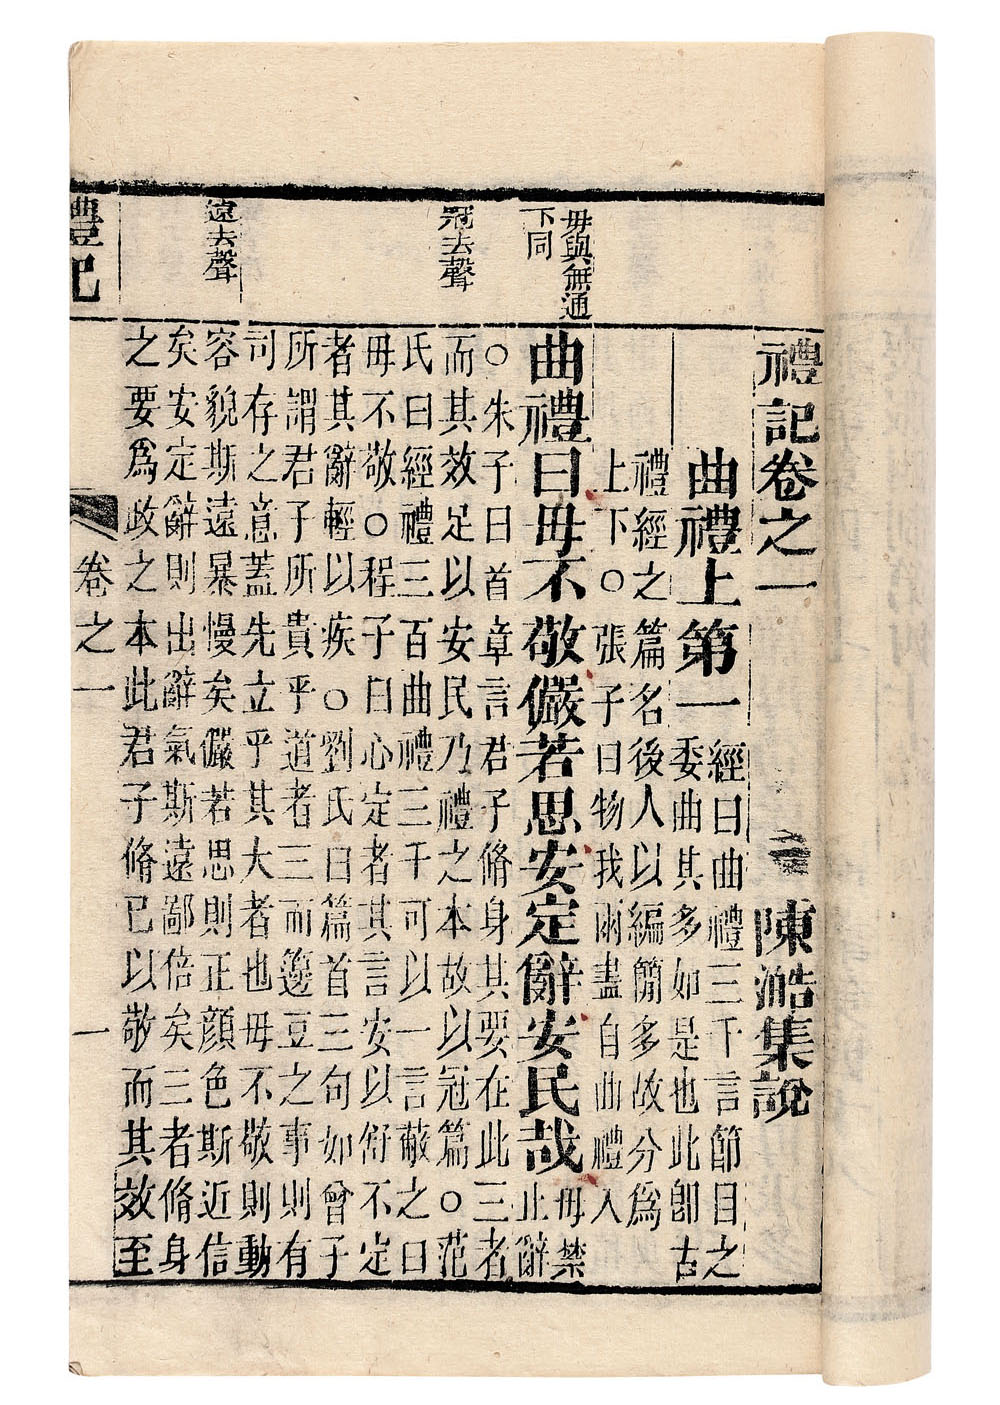 禮記卷之一
陳澔集說
曲禮上第一
經曰曲禮三千言節目之
委曲其多如是也此卽古
禮經之篇名後人以編簡多故分爲
上下○張子曰物我兩盡自曲禮入
毋與無通
下同
曲禮曰毋不敬儼若思安定辭安民哉
毋禁
止辭
○朱子曰首章言君子脩身其要在此三者
冠去聲
而其效足以安民乃禮之本故以冠篇○范
氏曰經禮三百曲禮三千可以一言蔽之曰
毋不敬○程子曰心定者其言安以舒不定
者其辭輕以疾○劉氏曰篇首三句如曾子
所謂君子所貴乎道者三而籩豆之事則有
司存之意蓋先立乎其大者也毋不敬則動
遠去聲
容貌斯遠暴慢矣儼若思則正顔色斯近信
矣安定辭則出辭氣斯遠鄙倍矣三者脩身
之要爲政之本此君子脩已以敬而其效至
禮記
卷之一
一